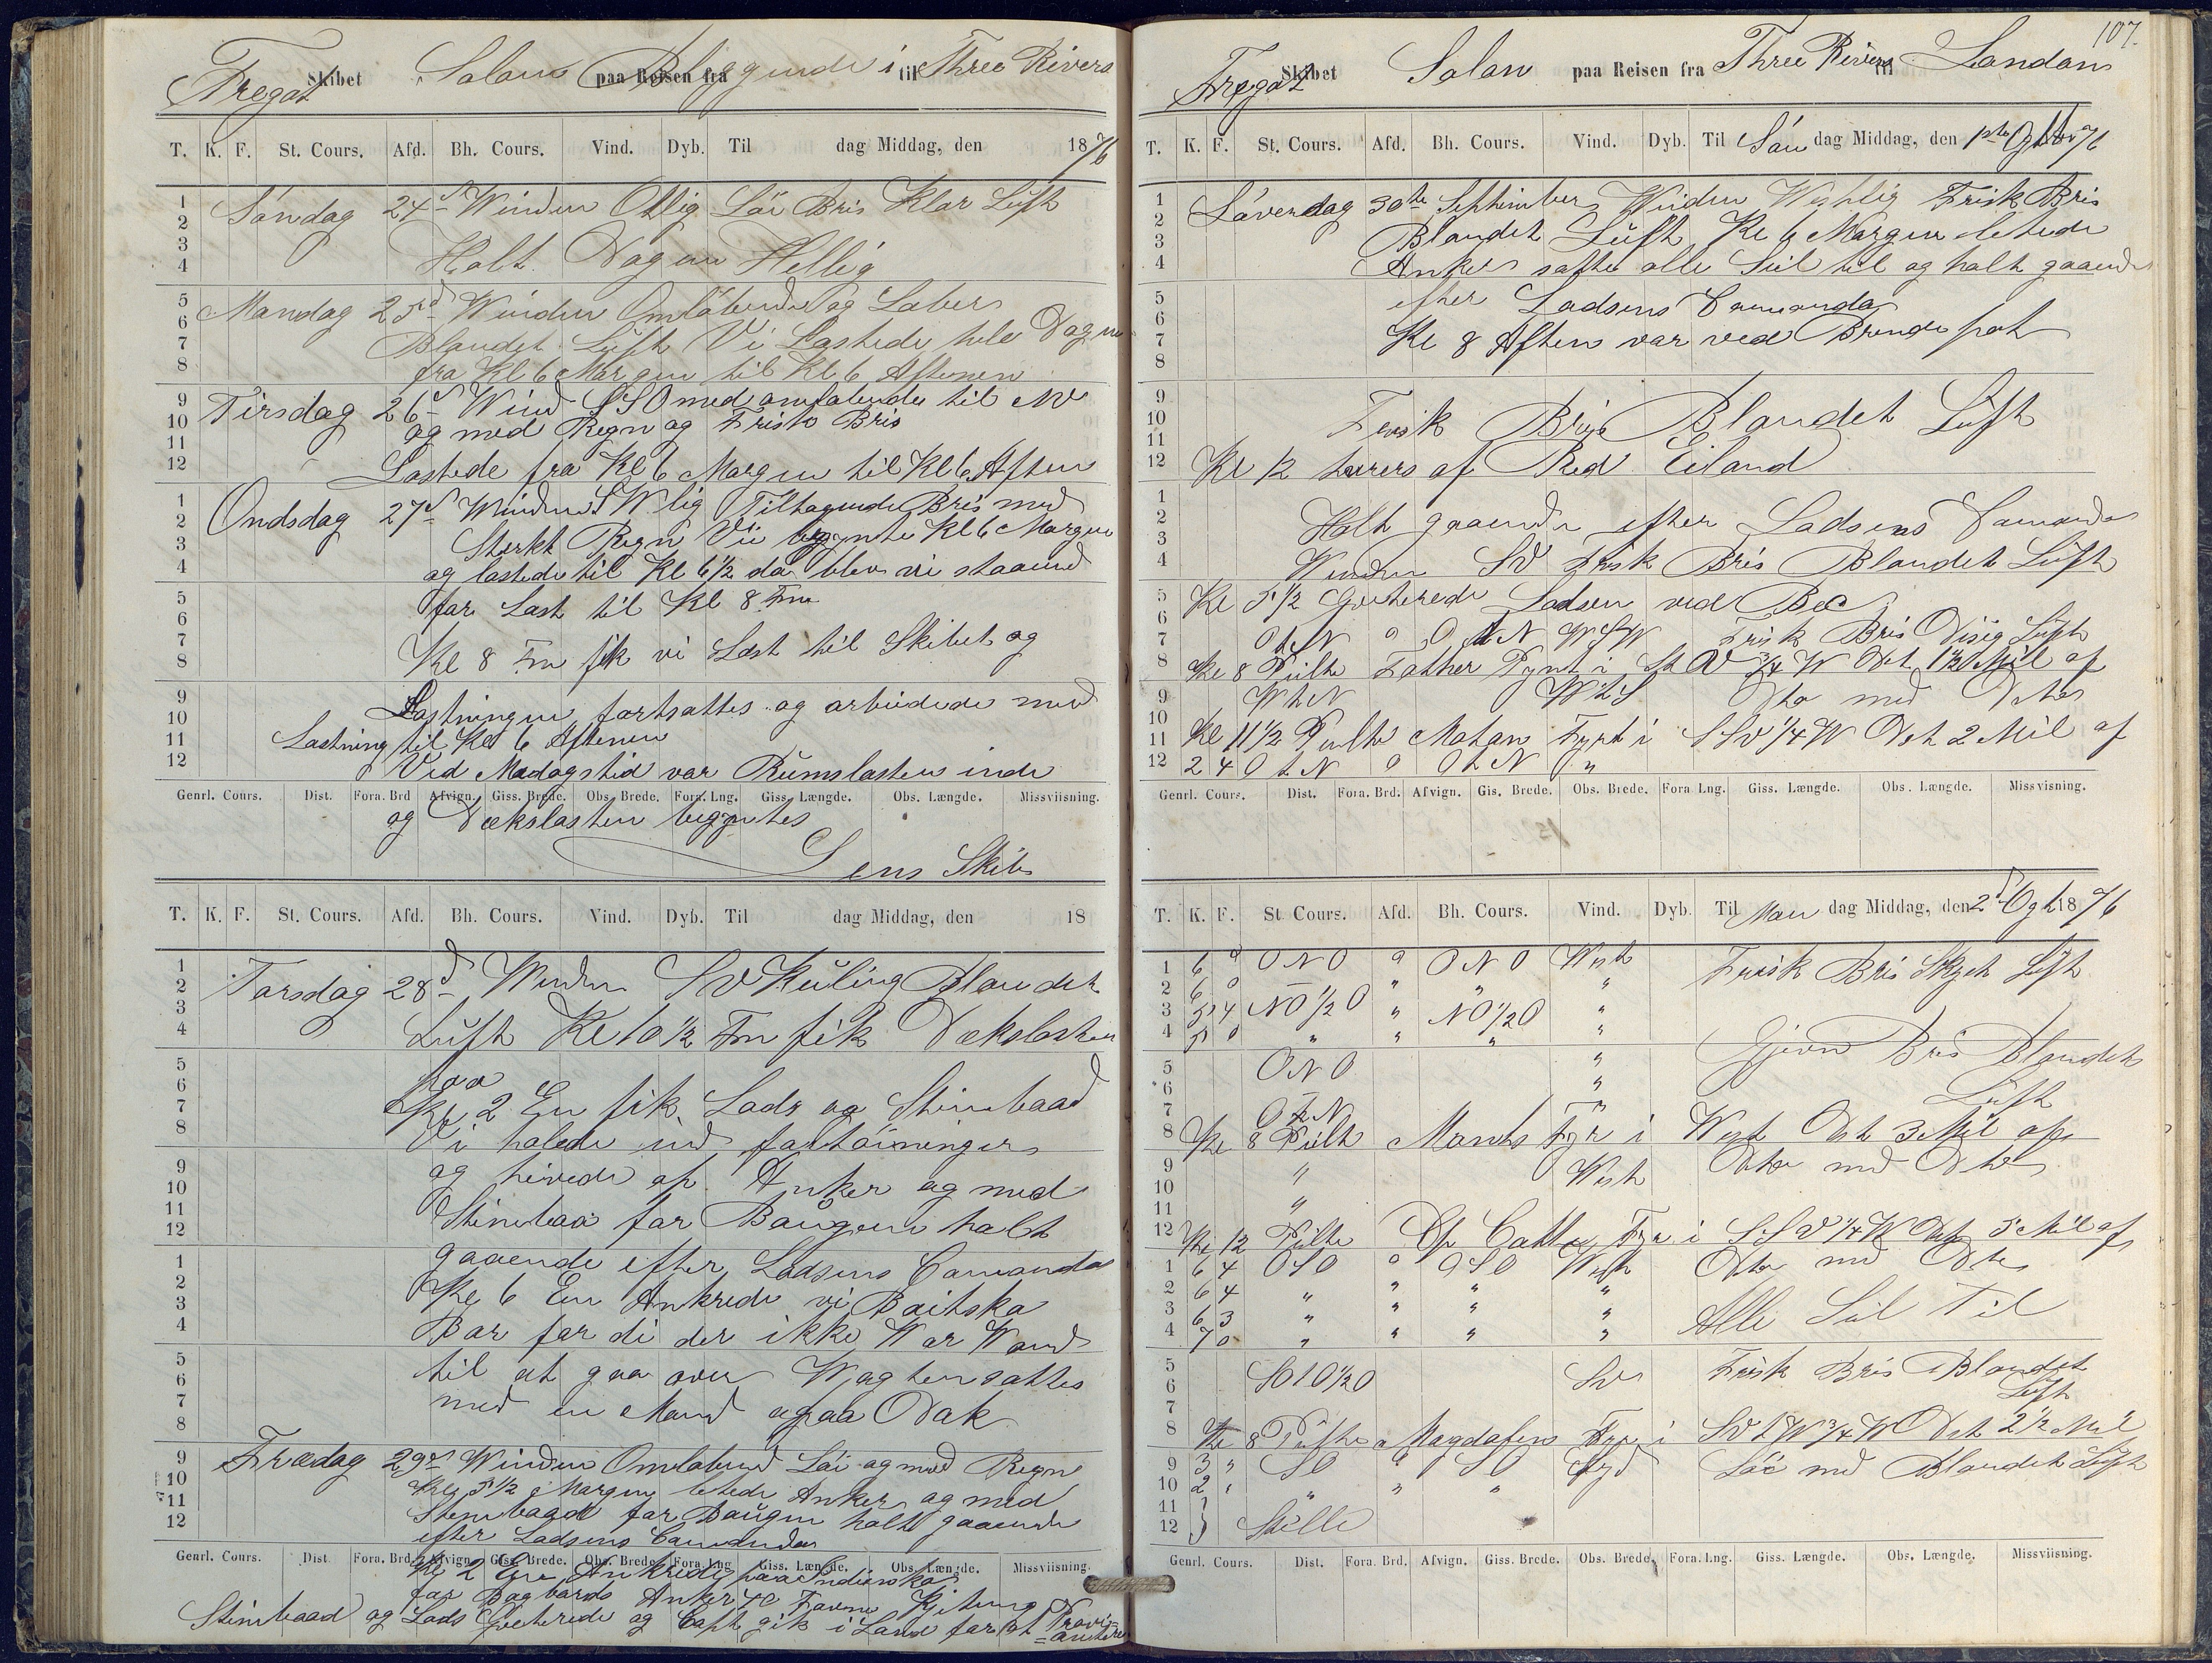 Fregat Skibet Solon paa Reisen fra Beliggende i til Three Rivers
T. K. F. St. Cours. Afd. Bh. Cours. Vind. Dyb. Til dag Middag, den 1876
Söndag 24d Winden Ostlig Löi Bris Klar Luft
Holt Dagen Hellig
Mandag 25d Winden Omlöbende og Laber
Blandet Luft Vi Lastede hele Dagen
fra Kl 6 Morgen til Kl 6 Aftenen
Tirsdag 26d Wind SSO med omlöbende til NV
og med Regn og Frisk Bris
Lastede fra Kl 6 Morgen til Kl 6 Aften
Ondsdag 27d Winden SWlig Tiltagende Bris med
Sterkt Regn Vii begynte Kl 6 Morgen
og lastede til Kl 6 1/2 da blev vi staaend
for Last til Kl 8 Fm
Kl 8 Fm fik vi Last til Skibet og
Lastningen fortsattes og arbeidede med
Lastning til Kl 6 Aftenen
Ved Medagstid var Rumslasten inde
Genrl. Cours. Dist. Fora. Brd Afvign. Giss. Brede. Obs. Brede. Fora. Lng. Giss. Længde. Obs. Længde. Missviisning.
og Dækslasten begyntes
Lens Skib
T. K. F. St. Cours. Afd. Bh. Cours. Vind. Dyb. Til dag Middag, den 18
Torsdag 28d Winden SV Kuling Blandet
Luft Kl 10 1/2 Fm fik Dækslasten
paa
Kl 2 Em fik Lods og Stimbaad
Vi halede ind fortöininger
og hivede op Anker og med
Stimbaa for Baugen holt
gaaende efter Lodsens Comando
Kl 6 Em Ankrede vi Baitska
Bar for di der ikke War Wand
til at gaa over Wagten sattes
med en Mand a paa Dæk
Fredag 29d Winden Omlöbend Löi og med Regn
Kl 5 1/2 Morgen letede Anker og med
Stimbaad for Baugen holt gaaende
efter Lodsens Comando
Genrl. Cours. Dist. Fora. Brd. Afvign. Giss. Brede. Obs. Brede. Fora. Lng. Giss. Længde. Obs. Længde. Missviisning.
Kl 2 Em Ankrede paa
for Bagbords Anker 40 Favne Kjetting
Stimbaad og Lods Qviterede og Capt gik i Land for at Provi=
=antere
107.
Fregat Skibet Solon paa Reisen fra Three Rivers til London
T. K. F. St. Cours. Afd. Bh. Cours. Vind. Dyb. Til Sön dag Middag, den 1ste Octbr 76
Löverdag 30te September Winden Westlig Frisk Bris
Blandet Luft Kl 6 Morgen letede
Anker satte alle Seil til og holt gaaende
efter Lodsens Comando
Kl 8 Aften var ved Brende pot
Frisk Bris Blandet Luft
Kl 12 tvers af Red Eiland
Holt gaaende efter Lodsens Comando
Winden SV Frisk Bris Blandet Luft
Kl 5 1/2 Qviterede Lodsen ved Bec
OtN 0 OtN WSW Frisk Bris Disig Luft
Kl 8 Peilte Father Pynt i StV 3/4 W Dst 1 1/2 Mil af
WtN WtS Dto med Dto
Kl 11 1/2 Peilte Matan Fyrt i SSV 1/4 W Dst 2 Mil af
2 4 OtN 0 OtN "
Genrl. Cours. Dist. Fora. Brd. Afvign. Gis. Brede. Obs. Brede. Fora Lng. Giss. Længde. Obs. Længde. Missvisning.
T. K. F. St. Cours. Afd. Bh. Cours. Vind. Dyb. Til Man dag Middag, den 2d Oct 1876
1 6 0 ONO 0 ONO West Frisk Bris Skyet Luft
2 6 0 " " " "
3 5 4 NO 1/2 O " NO 1/2 O "
4 5 0 " " " "
5 ONO " Gjevn Bris Blandet
6 " Luft
7 OtN "
Kl 8 Peilt Monts Fyr i West Dst 3 Mil af
9 " West Dto med Dto
11 "
Kl 12 Peilte Cp Catte Fyr i SSV 1/4 W Dst 5 Mil af
1 6 4 OSO 0 OSO West Dto med Dto
2 6 4 " " " "
3 6 3 " " " " Alle Seil Til
4 7 0 " " " "
SOtO 1/2 O SW Frisk Bris Blandet
Luft
Kl 8 Peilte Magdalen Fyr i SVtW 3/4 W Dst 2 1/2 Mil
9 3 " SO 0 SO Syd Löi med Blandet Luft
10 2 " " " "
11
12 Stille
Genrl. Cours. Dist. Fora. Brd. Afvign. Giss. Brede. Obs. Brede. Fora. Lng. Giss. Længde. Obs. Længde. Missviisning.